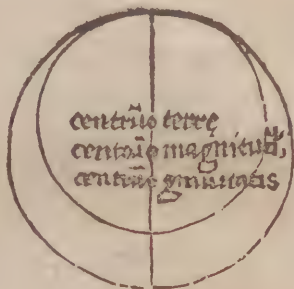 centrũ o terrę
centrũ o magnitudi,
centrũ o grauitatis